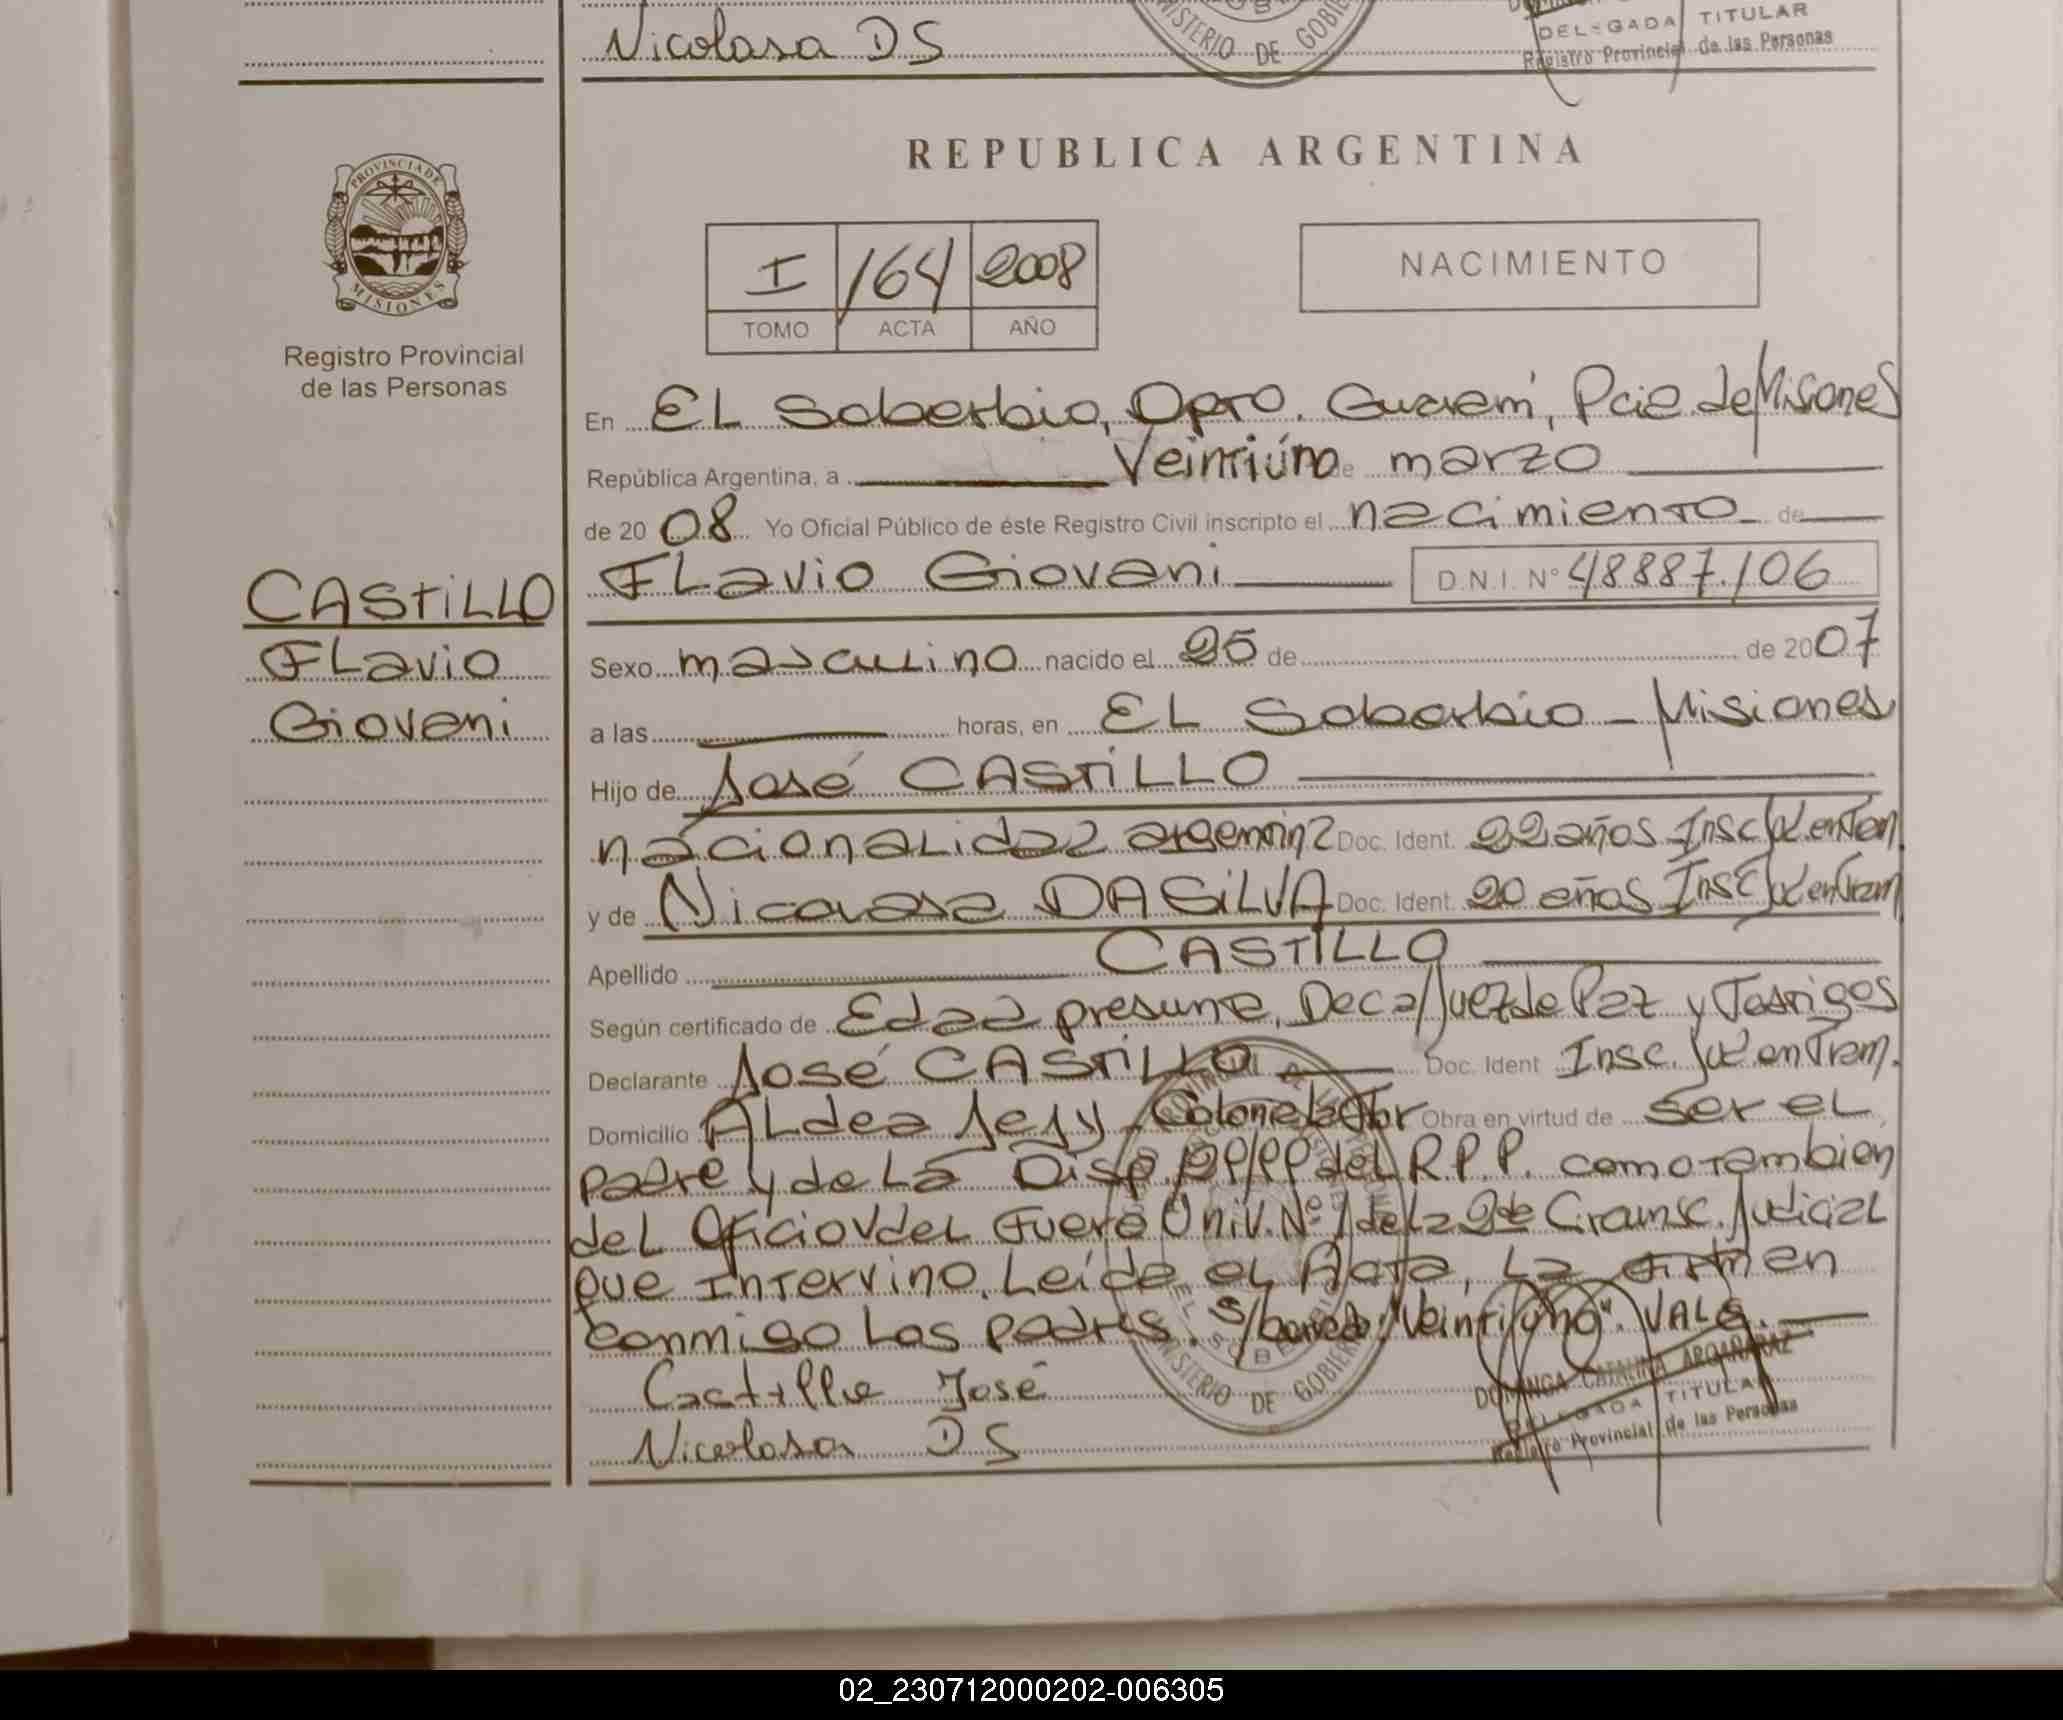 Nicolasa DS
MINISTERIO DE GOBIE
DELEGADA TITULAR
Registro Provincial de las Personas
PROVINCIA DE
MISIONES
Registro Provincial
de las Personas
REPUBLICA ARGENTINA
I 164 2008
TOMO ACTA AÑO
NACIMIENTO
En EL Soberbio, Dpto. Guarani, Pcia de Misiones
República Argentina, a Veintiúno de marzo
de 20 08 Yo Oficial Público de éste Registro Civil inscripto el nacimiento de
Flavio Giovani D.N.I. N° 48887106
CASTILLO
Flavio
Giovani
Sexo masculino nacido el 25 de de 2007
a las horas, en EL Soberbio - Misiones
Hijo de José CASTILLO
nacionalidad argentina Doc. Ident. 22 años Insc Jud. en Tram
y de Nicolasa DA SILVA Doc. Ident. 20 años Insc Jud en Tram
Apellido CASTILLO
Según certificado de Edad presunta, Dec a/Juez de Paz y Testigos
Declarante José CASTILLO Doc. Ident Insc. Jud en Tram.
Domicilio Aldea Jejy - Obra en virtud de ser el
padre y de la Disp. del R.P.P. como tambien
del Oficio V del Fuero Univ. N° 1 de la 2da Circunsc. Judicial
que Intervino. Leída el Acta, la firman
conmigo los padres. S/borrado: "Veintiúno". VALE.
Castillo José
Nicolasa DS
MINISTERIO DE GOBIERN
EL SOBERBIO
DOMINGA CATALINA ARGAÑARAZ
DELEGADA TITULAR
Registro Provincial de las Personas
02_230712000202-006305